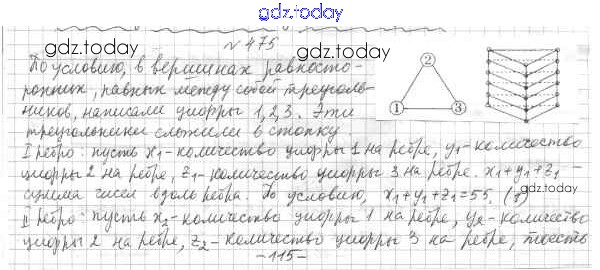 gdz.today
№ 475
gdz.today
gdz.today
По условию, в вершинах равносто-
ронних, равных между собой треуголь-
ников, написали цифры 1, 2, 3. Эти
треугольники сложили в стопку.
2
1 3
I ребро: пусть x₁ - количество цифры 1 на ребре, y₁ - количество
цифры 2 на ребре, z₁ - количество цифры 3 на ребре. x₁+y₁+z₁ -
сумма чисел вдоль ребра. По условию, x₁+y₁+z₁=55. (1)
gdz.today
II ребро: пусть x₂ - количество цифры 1 на ребре, y₂ - количество
цифры 2 на ребре, z₂ - количество цифры 3 на ребре, тоесть
-115-